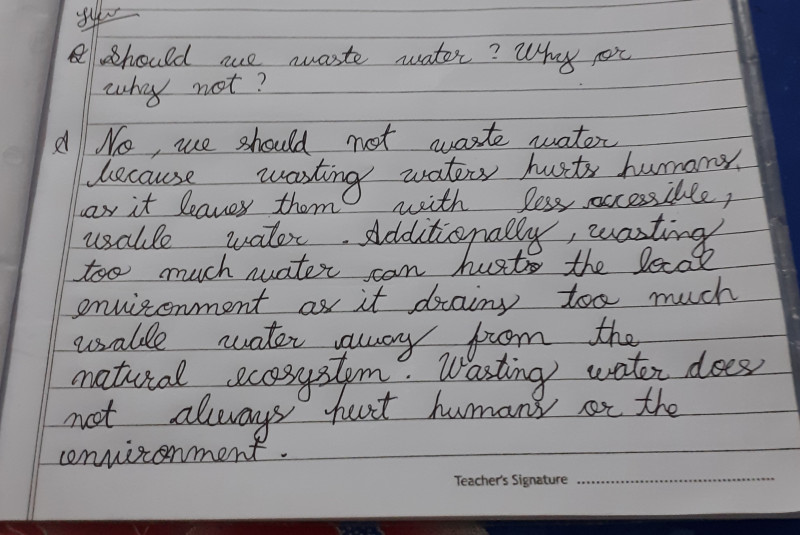 Q Should we waste water ? Why or
why not ?
A No, we should not waste water
because wasting waters hurts humans,
as it leaves them with less accessible,
usable water. Additionally, wasting
too much water can hurts the local
environment as it drains too much
usable water away from the
natural ecosystem. Wasting water does
not always hurt humans or the
environment.
Teacher's Signature ........................................